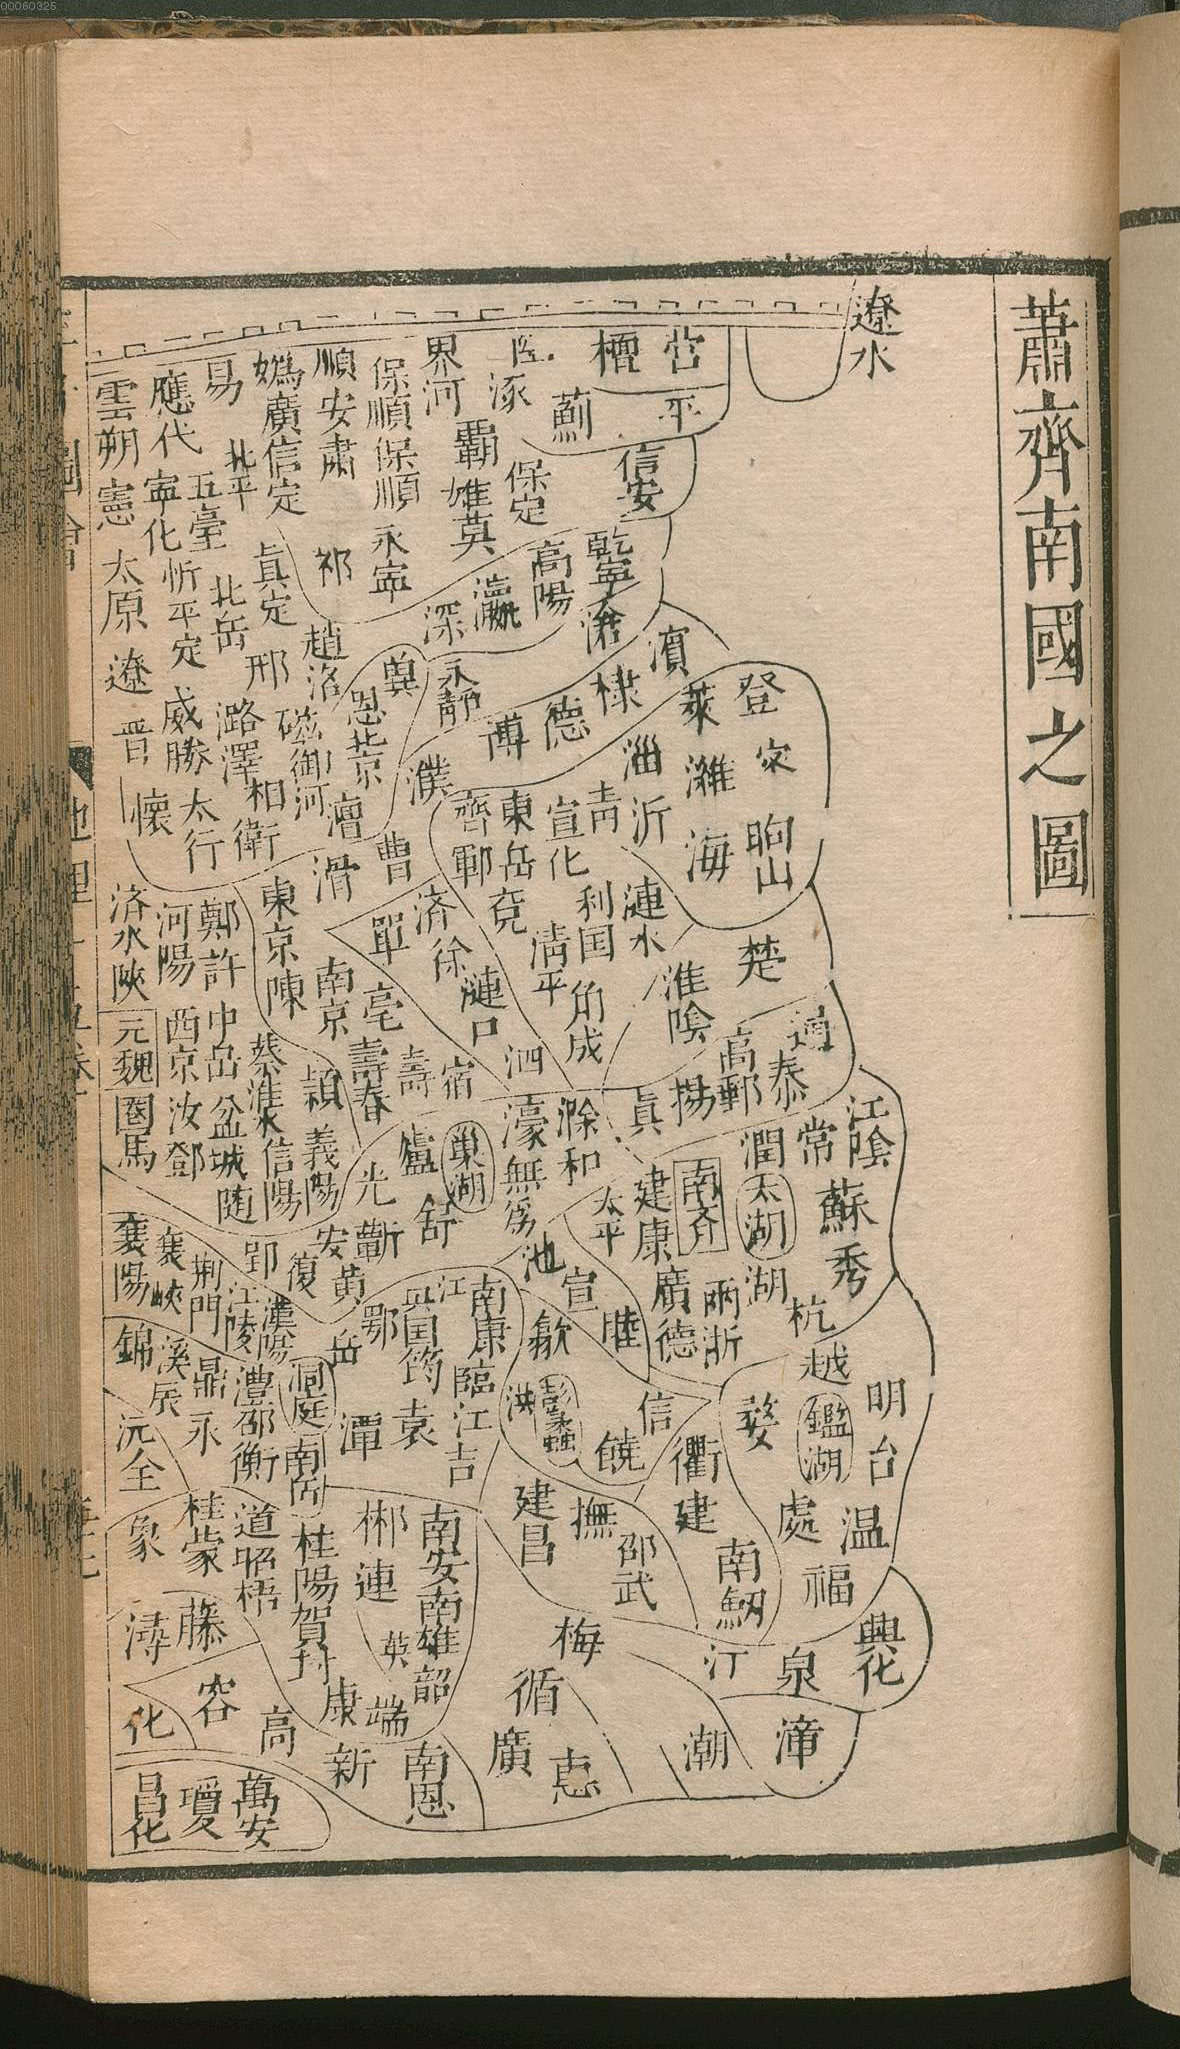 00060325
蕭齊南國之圖
遼水
營
平
檀
薊
信安
涿
界河
霸
雄莫
保定
保順保順
永寧
順安肅
祁
嬀廣信定
真定
易
北平
五臺
北岳
應代
寧化
忻平定
威勝
太行
雲朔憲
太原
遼
晋
懷
乾寧
高陽
瀛
深
滄
濱
棣
德
博
永靜
冀
恩
趙洺
邢
磁御河
相
衛
潞澤
濮
曹
滑
登
萊
濰
淄
沂
青
海
朐山
宣化
東岳
兗
齊鄆
利国
漣水
清平
角成
済
徐
單
漣口
泗
宿
東京陳
南京
亳
壽春
潁
鄭許
中岳
河陽
西京
汝鄧
済水陝
元魏
蔡淮水信陽
義陽
隨
淮陰
楚
通
泰
高郵
揚
真
滁
和
濠
無爲
廬
巢湖
舒
光
蘄
安
黃
江陰
常
潤
太湖
湖
蘇
秀
杭
南齐
建康
廣德
太平
兩浙
池
宣
睦
歙
襄陽
襄
峽
荆門
郢
江陵
漢陽
復
鄂
岳
江
南康
筠
臨江吉
袁
潭
洞庭
澧邵衡
鼎
永
溪
辰
錦
沅全
彭蠡
洪
饒
信
衢
婺
越
鑑湖
明
台
溫
處
福
建
建昌
撫
邵武
南劒
汀
泉
興化
漳
潮
梅
循
惠
廣
南安南雄韶
郴
連
英
端
康
桂陽賀封
道昭梧
桂蒙
藤
象
潯
容
化
高
新
南恩
萬安
瓊
昌化